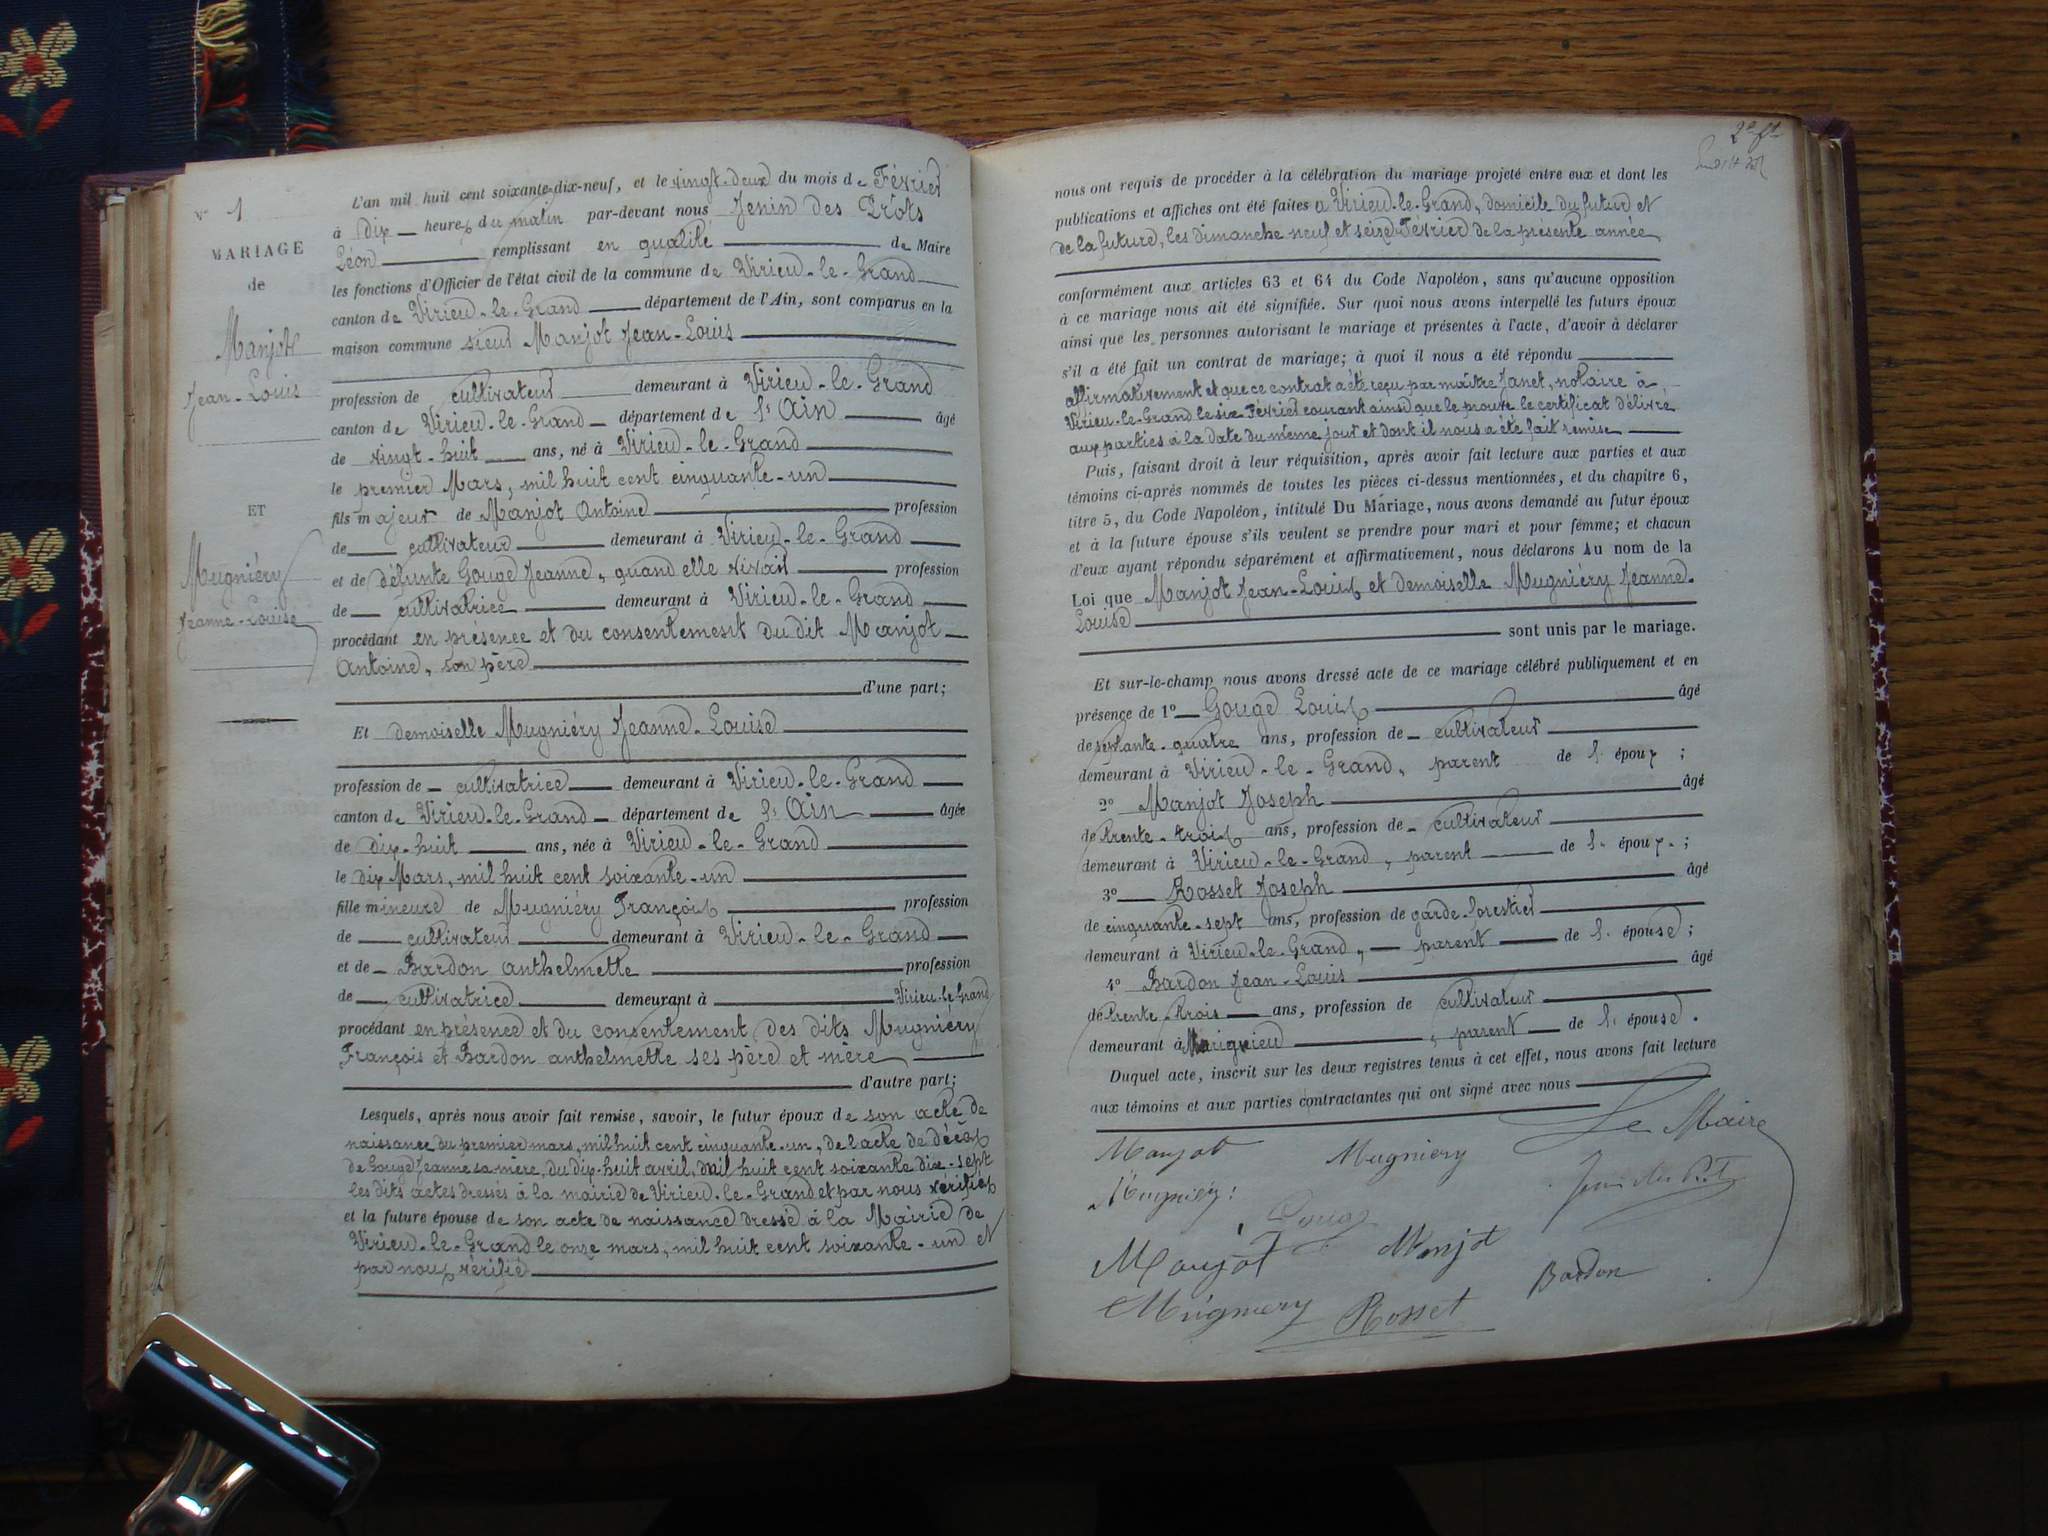 N° 1
MARIAGE
de
Manjot
Jean-Louis
ET
Mugniéry
Jeanne-Louise
L'an mil huit cent soixante-dix-neuf, et le vingt-deux du mois de Février
à dix heures du matin par-devant nous Jenin des Prots
Léon remplissant en qualité de Maire
les fonctions d'Officier de l'état civil de la commune de Virieu-le-Grand
canton de Virieu-le-Grand département de l'Ain, sont comparus en la
maison commune sieur Manjot Jean-Louis
profession de cultivateur demeurant à Virieu-le-Grand
canton de Virieu-le-Grand département de l'Ain âgé
de vingt-huit ans, né à Virieu-le-Grand
le premier Mars, mil huit cent cinquante-un
fils majeur de Manjot Antoine profession
de cultivateur demeurant à Virieu-le-Grand
et de défunte Gouge Jeanne, quand elle vivait profession
de cultivatrice demeurant à Virieu-le-Grand
procédant en présence et du consentement du dit Manjot
Antoine, son père
d'une part;
Et demoiselle Mugniéry Jeanne-Louise
profession de cultivatrice demeurant à Virieu-le-Grand
canton de Virieu-le-Grand département de l'Ain âgée
de dix-huit ans, née à Virieu-le-Grand
le dix Mars, mil huit cent soixante-un
fille mineure de Mugniéry François profession
de cultivateur demeurant à Virieu-le-Grand
et de Bardon anthelmette profession
de cultivatrice demeurant à Virieu-le-Grand
procédant en présence et du consentement des dits Mugniéry
François et Bardon anthelmette ses père et mère
d'autre part;
Lesquels, après nous avoir fait remise, savoir, le futur époux de son acte de
naissance du premier mars, mil huit cent cinquante-un, de l'acte de décès
de Gouge Jeanne sa mère, du dix-huit avril, mil huit cent soixante dix-sept
les dits actes dressés à la mairie de Virieu-le-Grand et par nous vérifiés
et la future épouse de son acte de naissance dressé à la Mairie de
Virieu-le-Grand le onze mars, mil huit cent soixante-un et
par nous vérifié
nous ont requis de procéder à la célébration du mariage projeté entre eux et dont les
publications et affiches ont été faites a Virieu-le-Grand, domicile du futur et
de la future, les dimanche neuf et seize Février de la présente année
conformément aux articles 63 et 64 du Code Napoléon, sans qu'aucune opposition
à ce mariage nous ait été signifiée. Sur quoi nous avons interpellé les futurs époux
ainsi que les personnes autorisant le mariage et présentes à l'acte, d'avoir à déclarer
s'il a été fait un contrat de mariage; à quoi il nous a été répondu
affirmativement et que ce contrat a été reçu par maître Janet, notaire à
Virieu-le-Grand le six Février courant ainsi que le prouve le certificat délivré
aux parties à la date du même jour et dont il nous a été fait remise
Puis, faisant droit à leur réquisition, après avoir fait lecture aux parties et aux
témoins ci-après nommés de toutes les pièces ci-dessus mentionnées, et du chapitre 6,
titre 5, du Code Napoléon, intitulé Du Mariage, nous avons demandé au futur époux
et à la future épouse s'ils veulent se prendre pour mari et pour femme; et chacun
d'eux ayant répondu séparément et affirmativement, nous déclarons Au nom de la
Loi que Manjot Jean-Louis et demoiselle Mugniéry Jeanne-
Louise
sont unis par le mariage.
Et sur-le-champ nous avons dressé acte de ce mariage célébré publiquement et en
présence de 1° Gouge Louis âgé
de quatre ans, profession de cultivateur
demeurant à Virieu-le-Grand, parent de l'époux ;
2° Manjot Joseph âgé
de trente-trois ans, profession de cultivateur
demeurant à Virieu-le-Grand, parent de l'époux ;
3° Rosset Joseph âgé
de cinquante-sept ans, profession de garde-forestier
demeurant à Virieu-le-Grand, parent de l'épouse ;
4° Bardon Jean-Louis âgé
de trente-trois ans, profession de cultivateur
demeurant à Marignieu, parent de l'épouse.
Duquel acte, inscrit sur les deux registres tenus à cet effet, nous avons fait lecture
aux témoins et aux parties contractantes qui ont signé avec nous
Le Maire
Manjot Mugniery
Mugniéry Gouge
Manjot Manjot Bardon
Mugniery Rosset